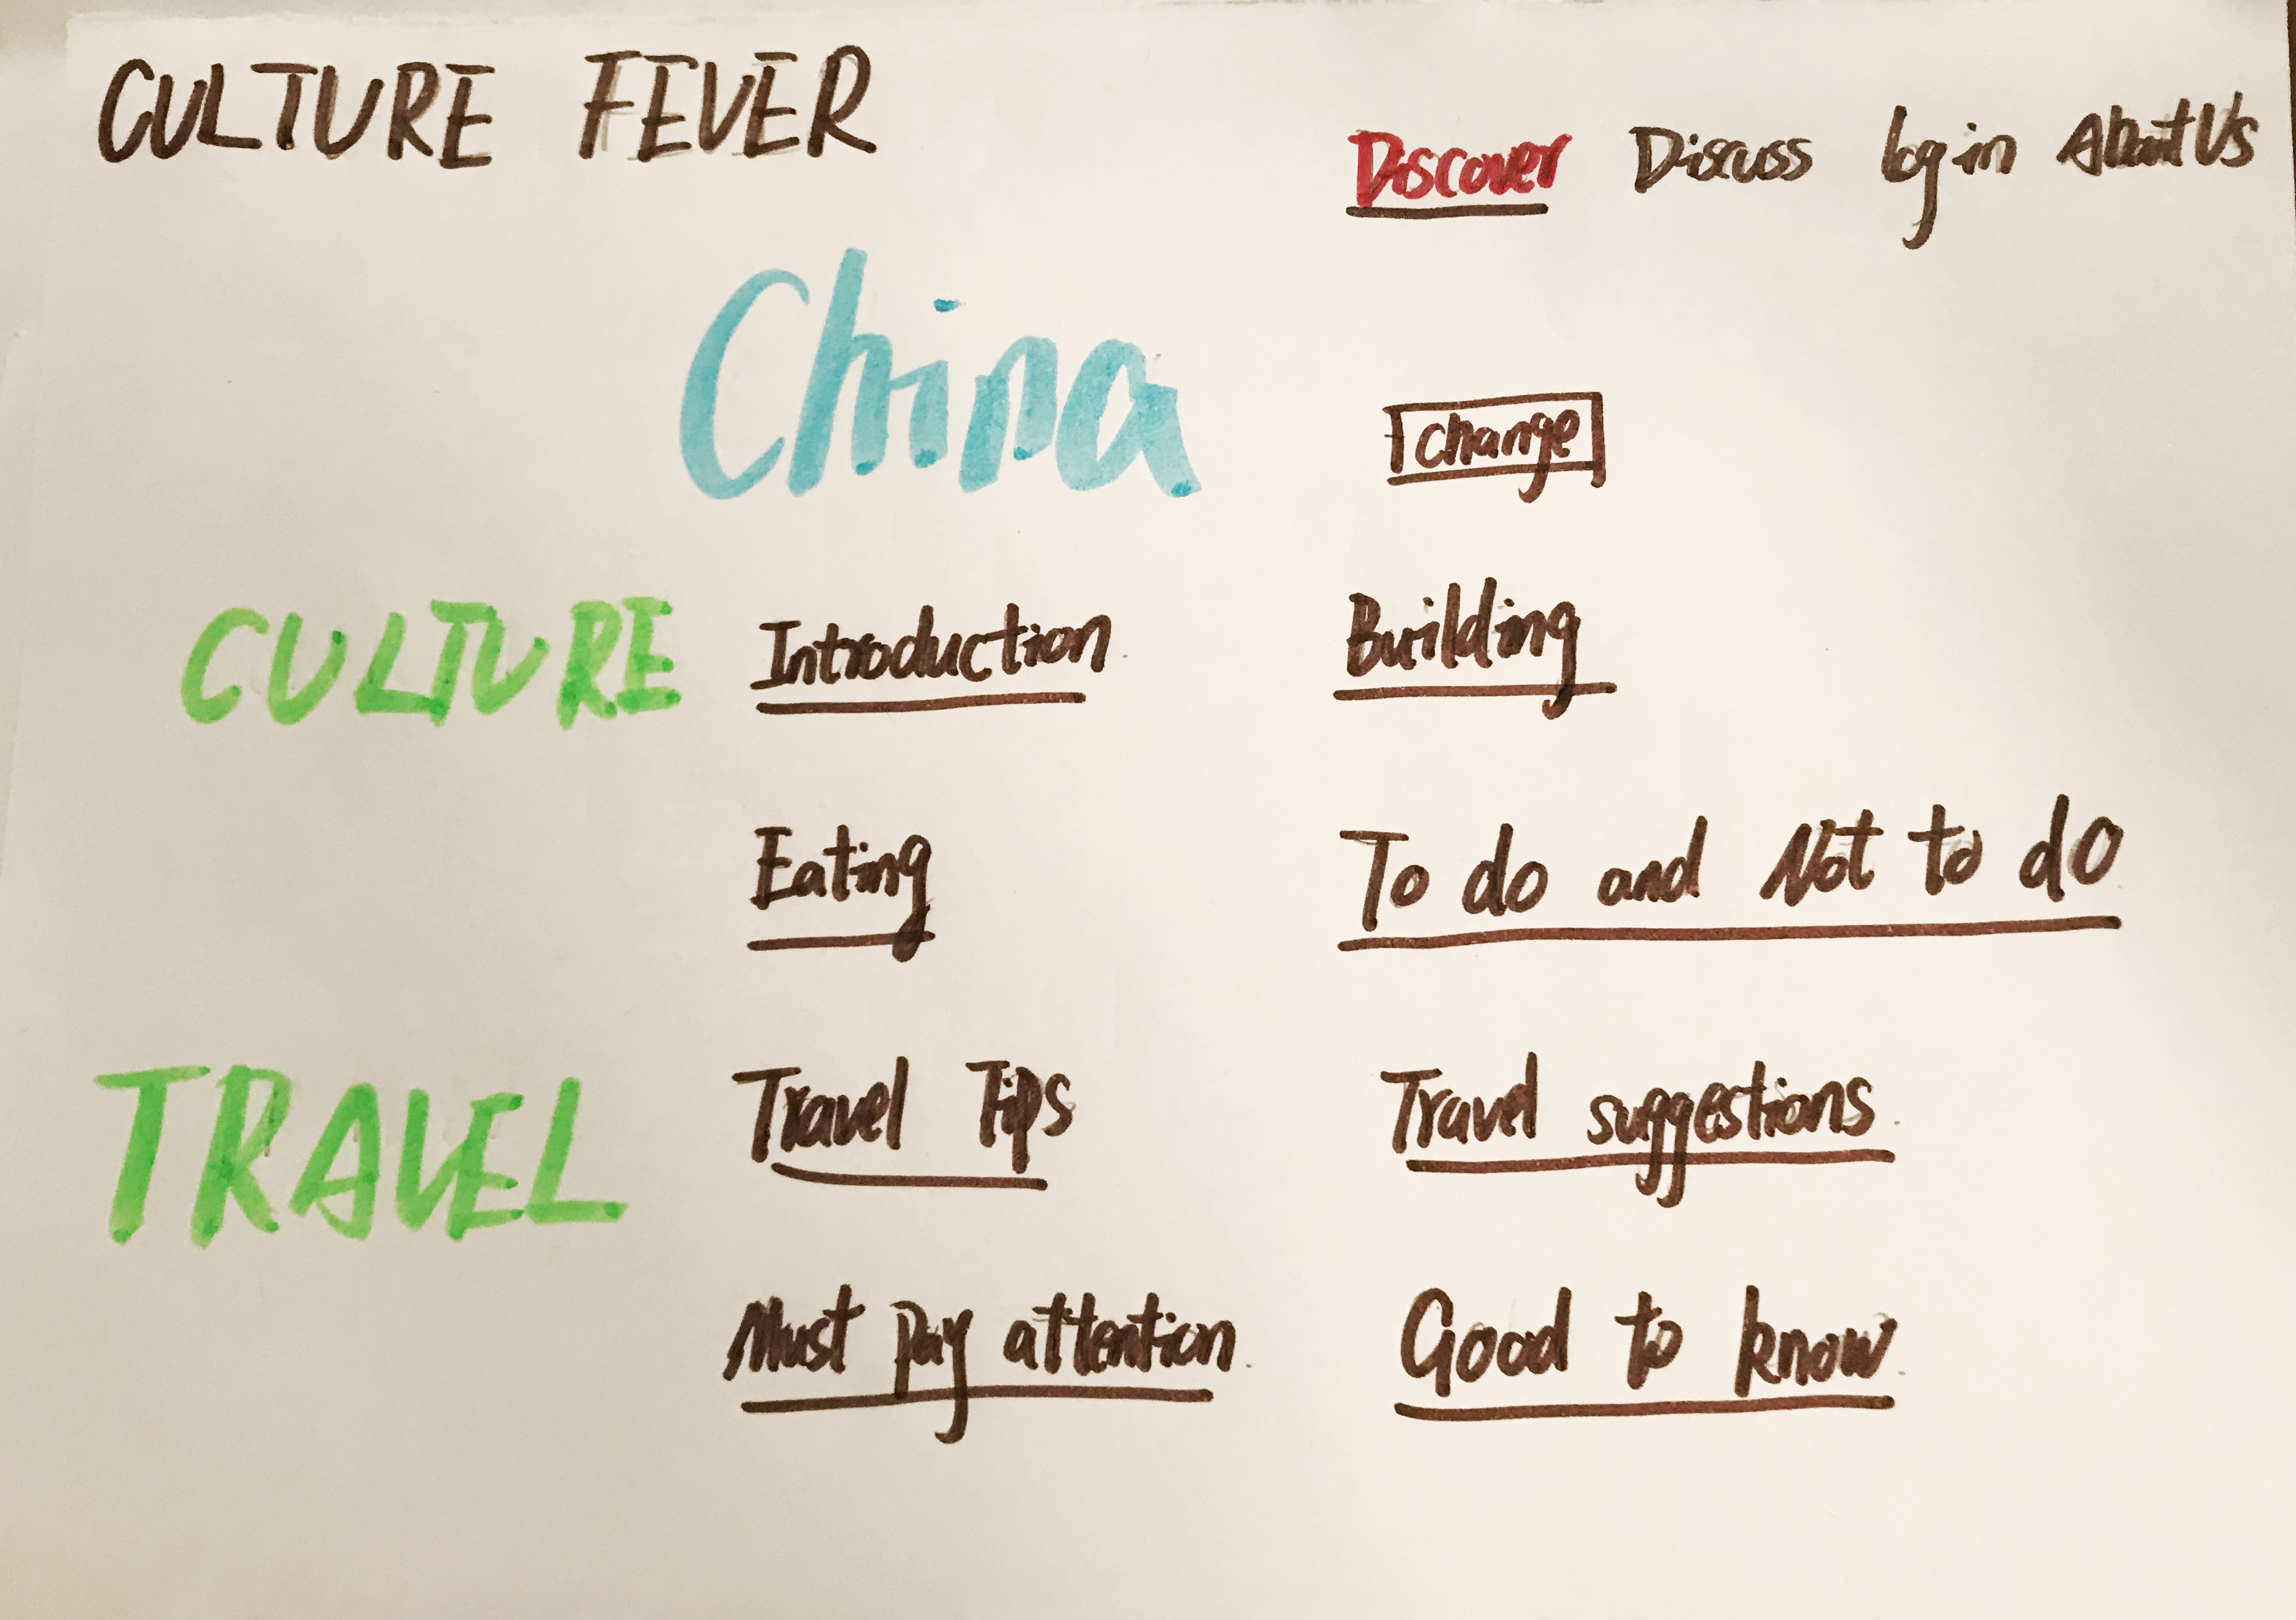 CULTURE FEVER
Discover Discuss log in About Us
China
Change
CULTURE Introduction Building
Eating To do and Not to do
TRAVEL Travel Tips Travel suggestions
Must pay attention Good to know